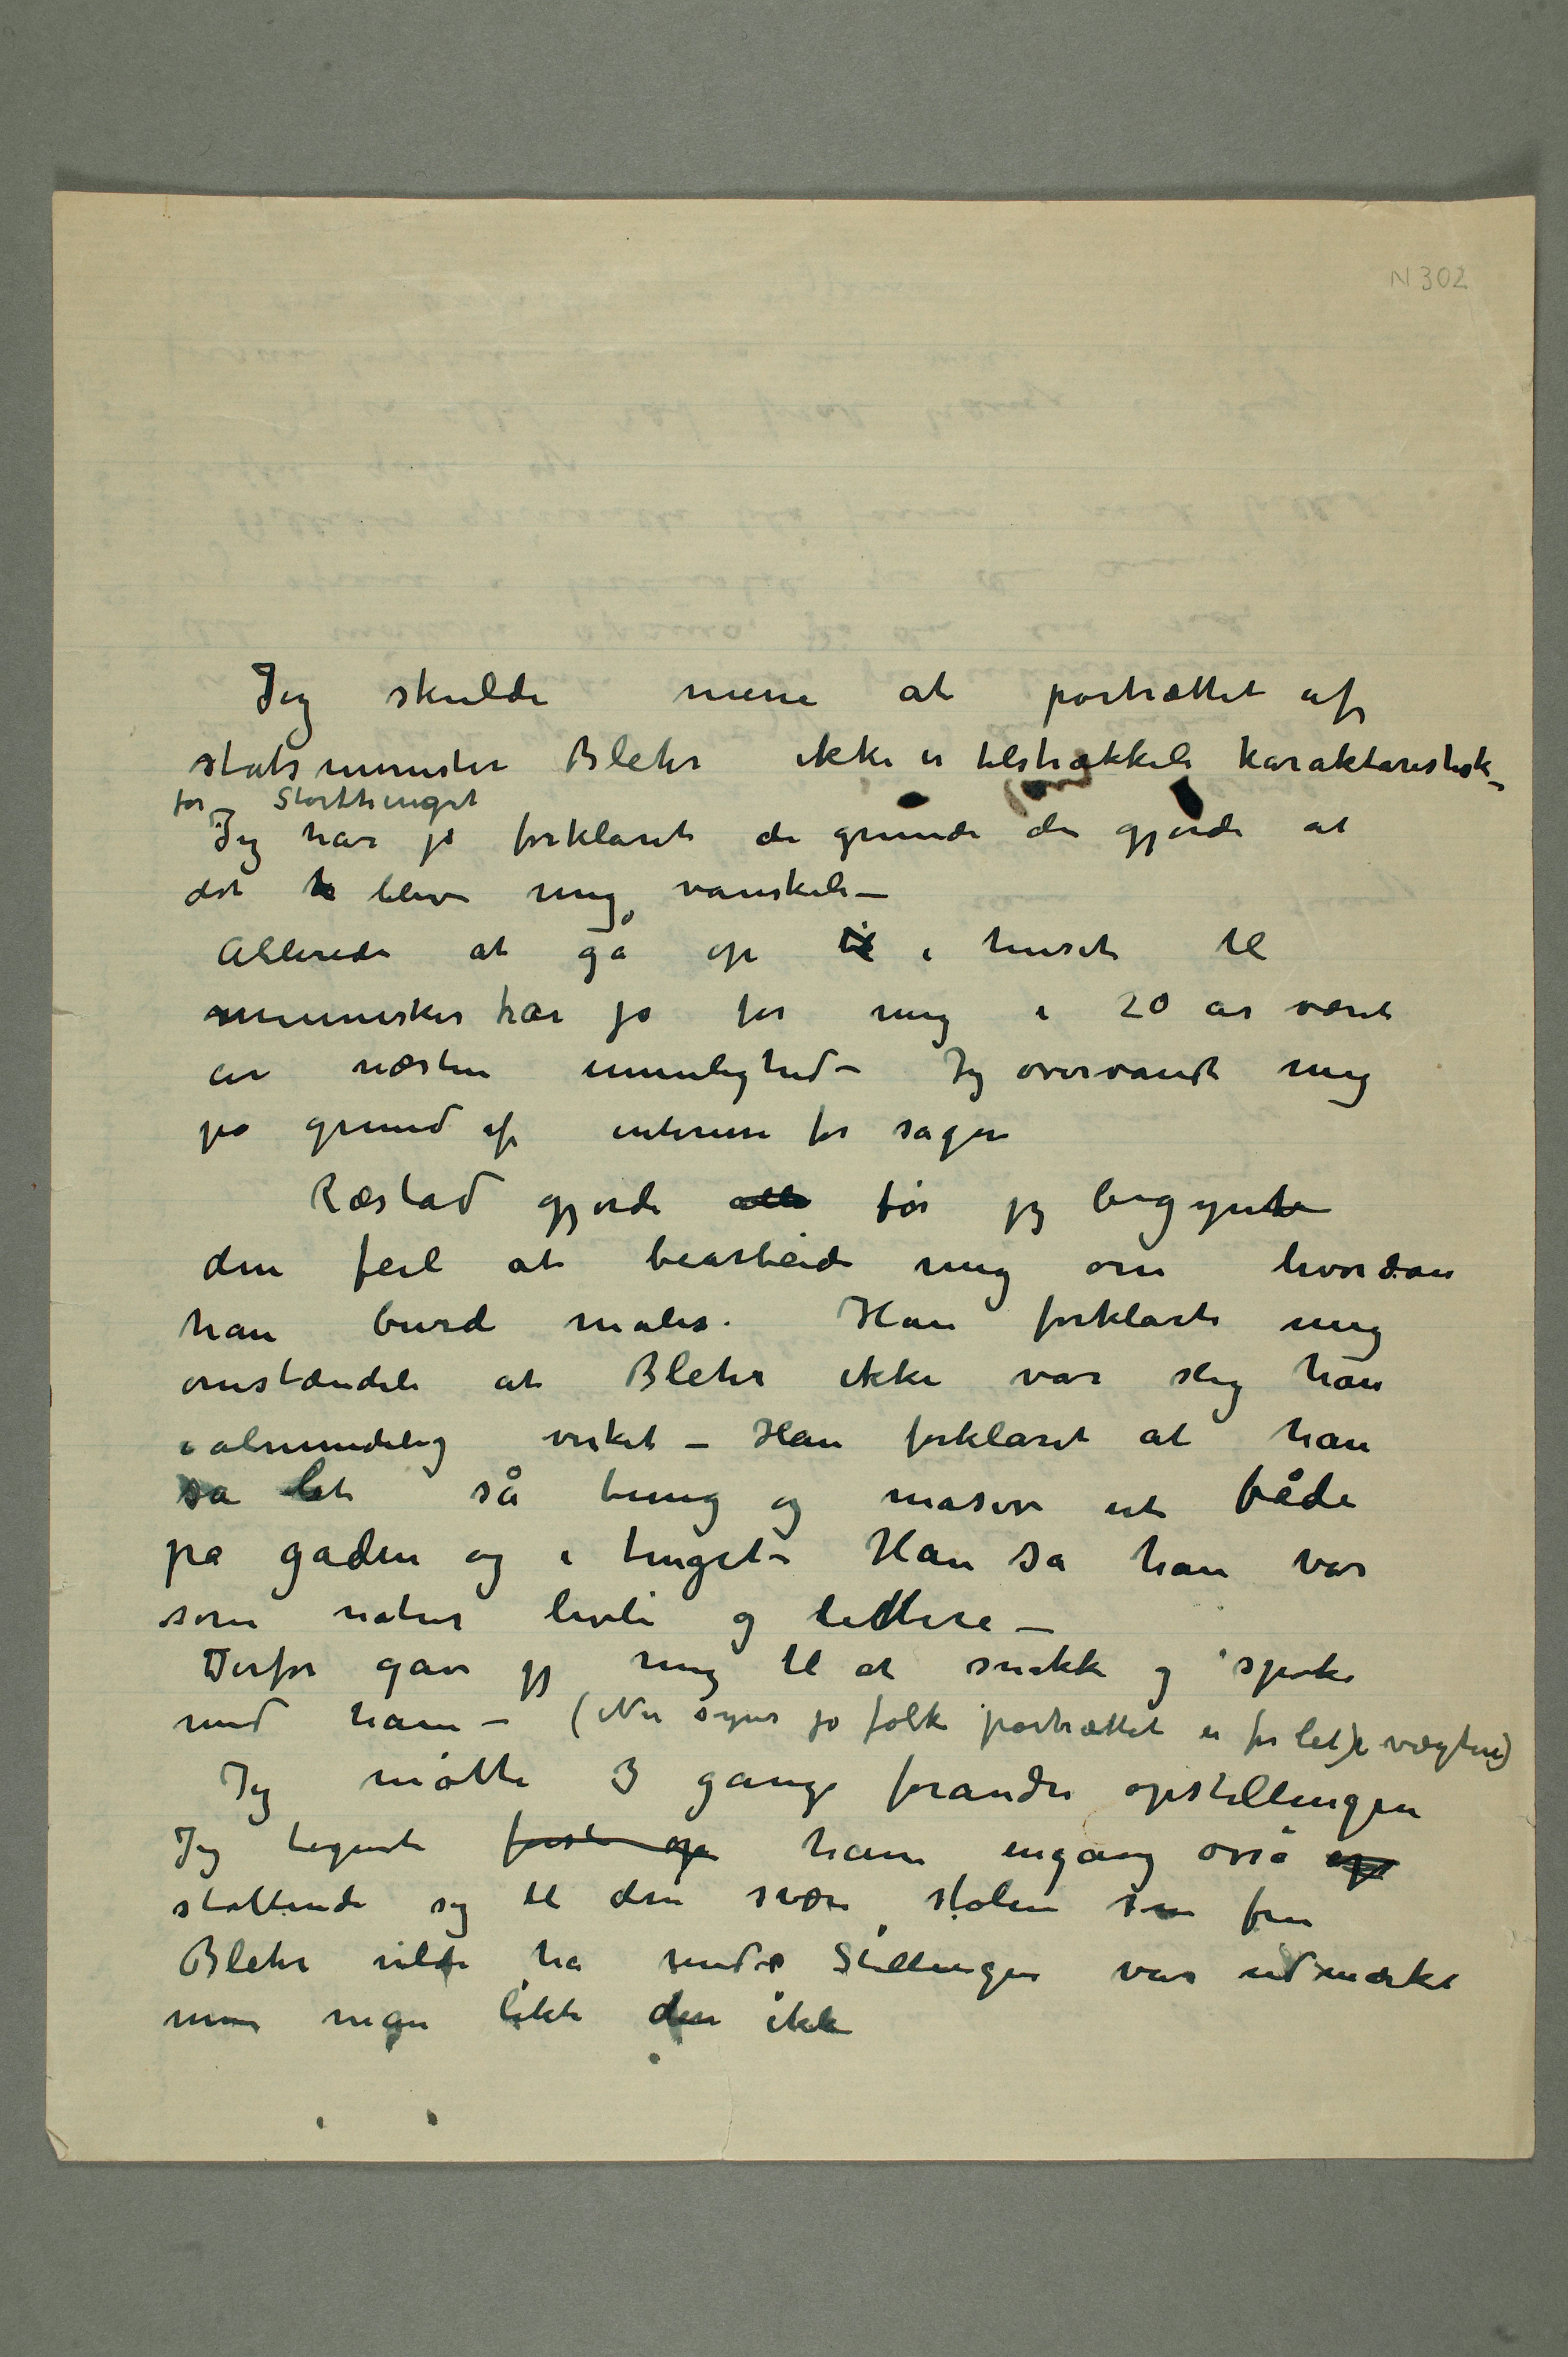 N 302
Jeg skulde mene at portrættet af
statsminister Blehr ikke er tilstrækkeli karaktæristisk –
for Storthinget
Jeg har jo forklaret de grunde der gjorde at
det blev mig vanskeli –
Allerede at gå op i huset til
mennesker har jo for mig i 20 år været
en næsten umulighed – Jeg overvandt mig
på grund af interesse for sagen
Ræstad gjorde alle før jeg begynte
den feil at bearbeide mig om hvordan
han burde males. Han forklarte mig
omstændeli at Blehr ikke var slig han
i almindelig virket – Han forklaret at han
så let så tung og masiv ut både
på gaden og i tinget – Han sa han var
som natur livli og lettere –
Derfor gav jeg mig til at snakke og spøke
med ham – (Nu synes jo folk portrættet er for let) i vægten)
Jeg måtte 3 gange forandre opstillingen
Jeg tegnet først op ham engang osså op
støttende sig til den svære stolen som fru
Blehr vilde ha med Stillingen var udmærket
men man likte den ikke